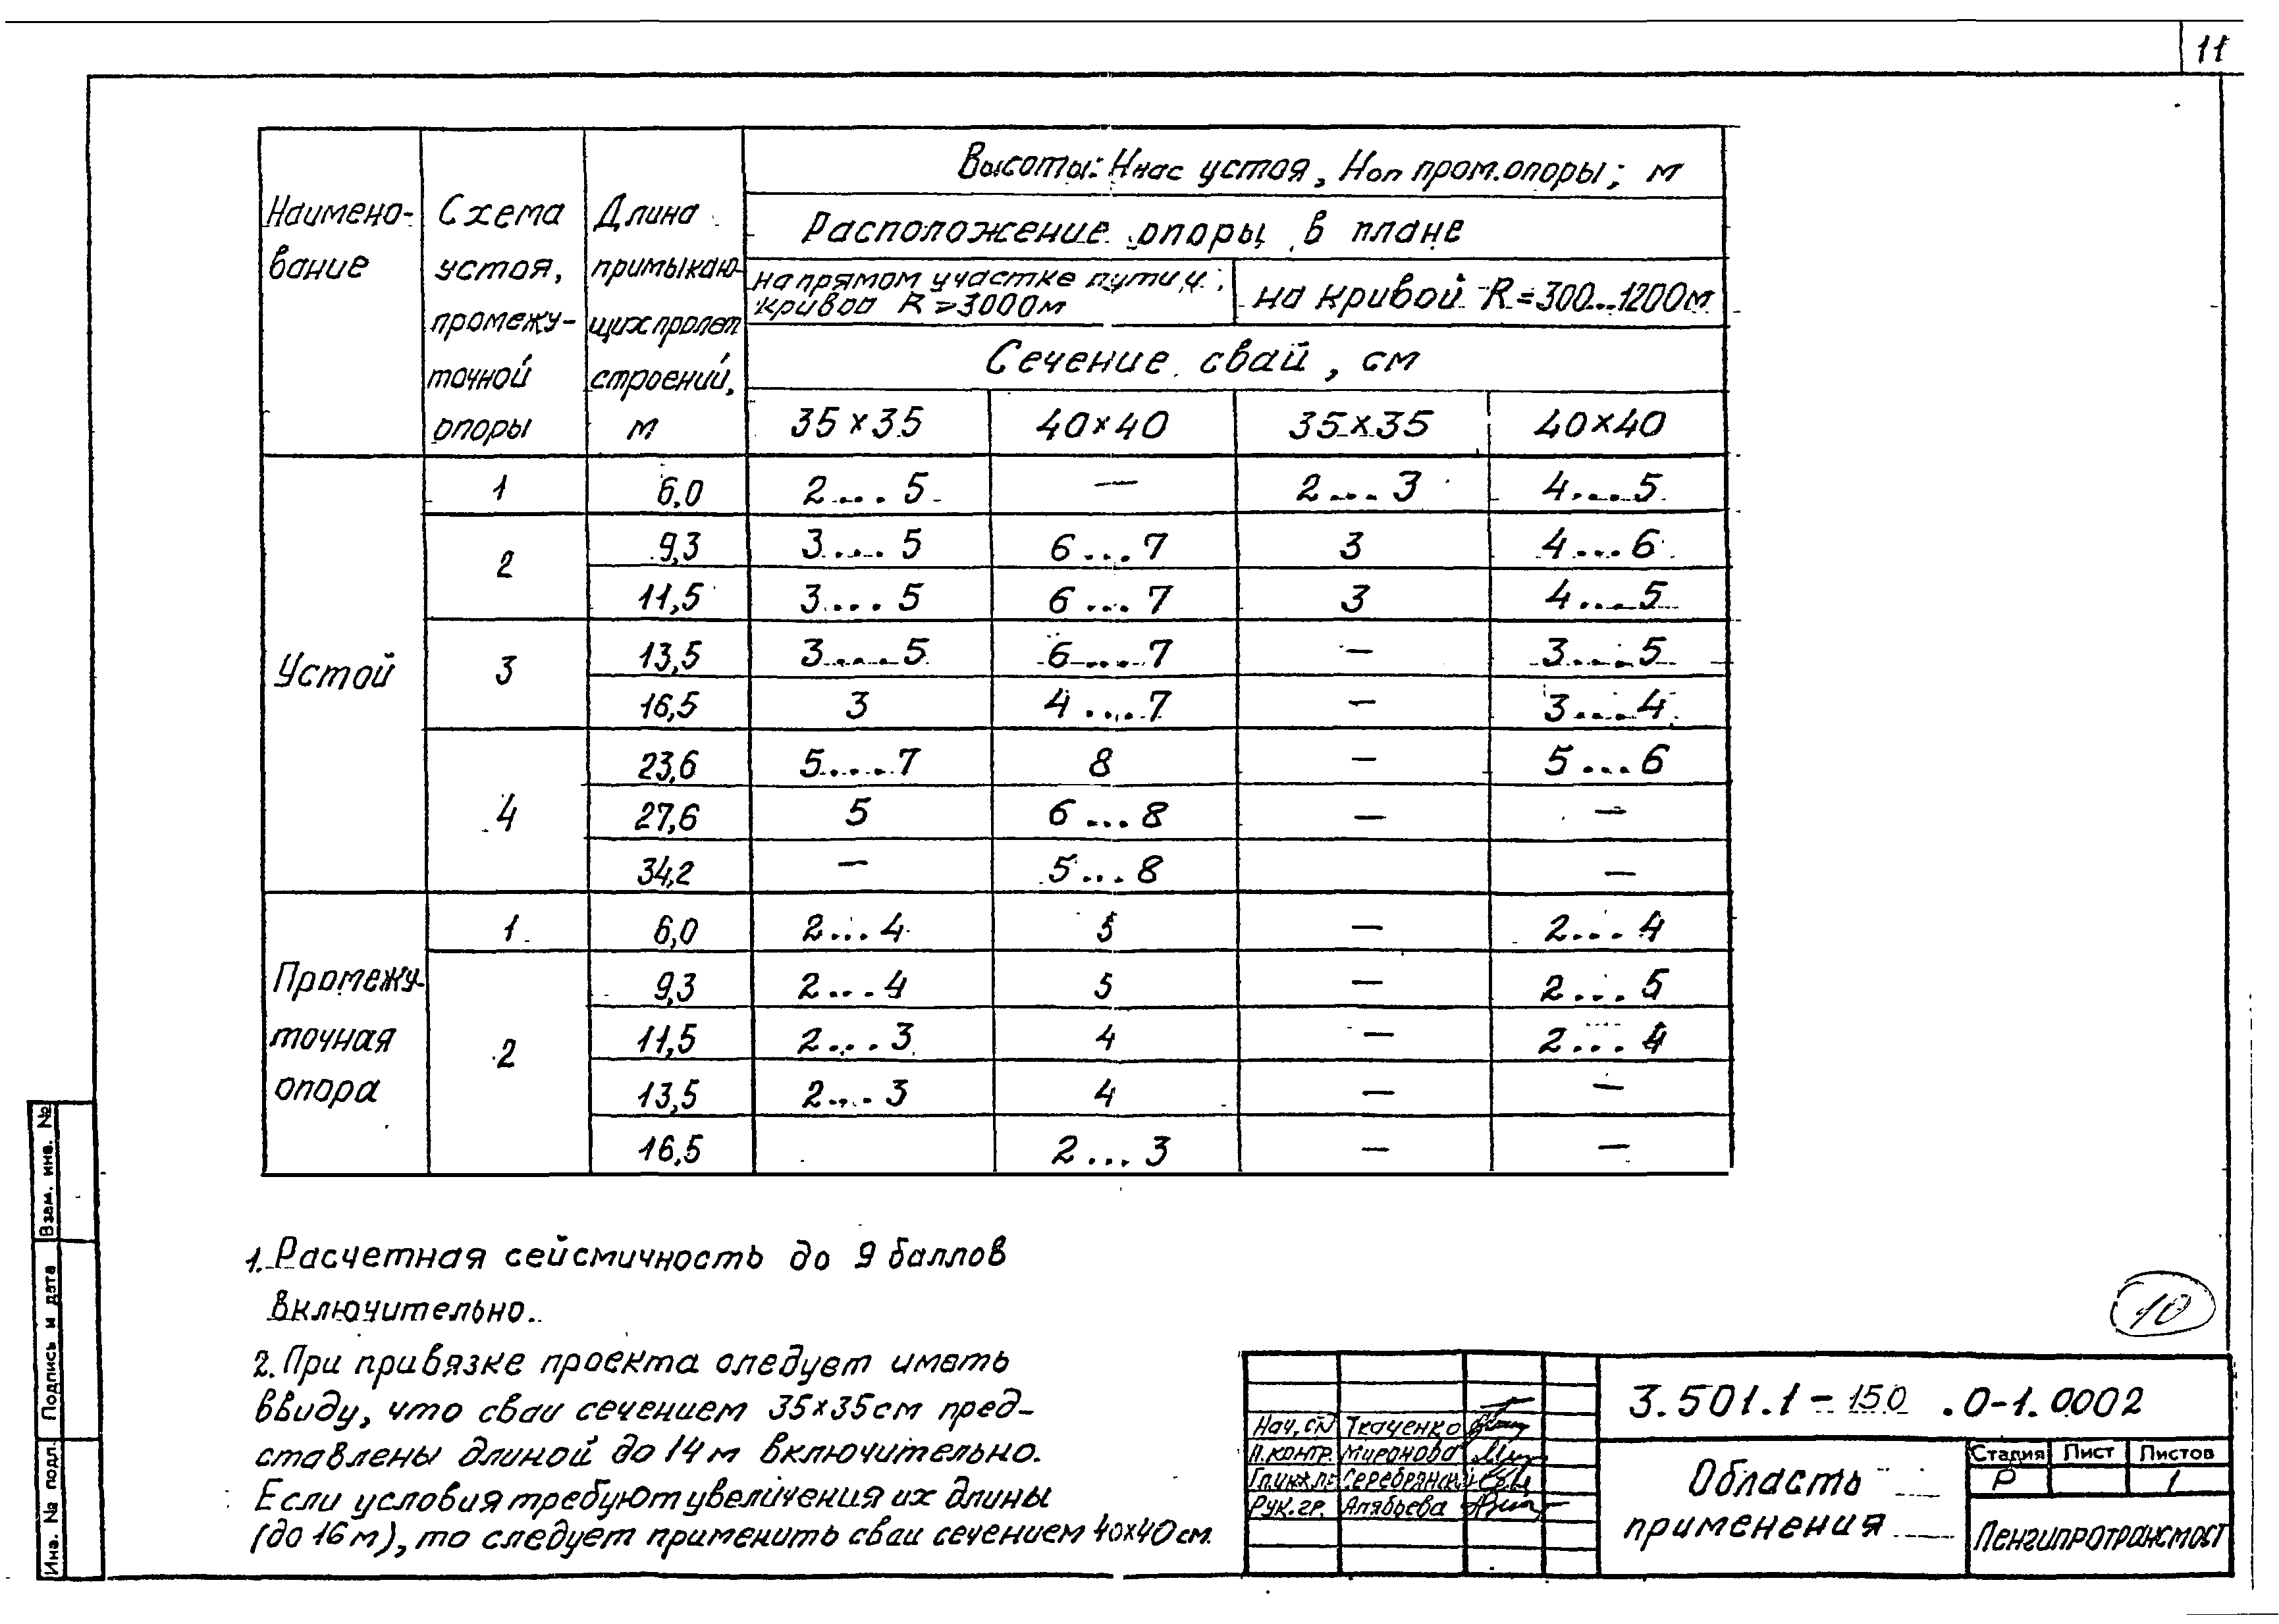 11
Наимено-
вание
Схема
устоя,
промежу-
точной
опоры
Длина
примыкаю-
щих пролет
строений,
м
Высоты: Ннас устоя, Ноп пром.опоры; м
Расположение опоры в плане
на прямом участке пути и
кривой R ⩾ 3000м
на кривой R=300...1200м
Сечение свай, см
35×35 40×40 35×35 40×40
Устой
1 6,0 2....5 — 2....3 4....5
2 9,3 3....5 6...7 3 4...6
11,5 3....5 6...7 3 4....5
3 13,5 3....5 6....7 — 3....5
16,5 3 4....7 — 3....4
4 23,6 5....7 8 — 5...6
27,6 5 6...8 — —
34,2 — 5...8 —
Промежу-
точная
опора
1 6,0 2...4 5 — 2...4
2 9,3 2...4 5 — 2...5
11,5 2...3 4 — 2...4
13,5 2...3 4 — —
16,5 2...3 — —
1. Расчетная сейсмичность до 9 баллов
включительно.
2. При привязке проекта следует иметь
ввиду, что сваи сечением 35×35см пред-
ставлены длиной до 14м включительно.
Если условия требуют увеличения их длины
(до 16м), то следует применить сваи сечением 40×40см.
10
Нач. Ткаченко
Н.контр. Миронова
Гл.инж.пр. Серебрянский
Рук.гр. Алябьева
3.501.1-150.0-1.0002
Область
применения
Стадия Лист Листов
Р 1
Ленгипротрансмост
Взам. инв. №
Подпись и дата
Инв. № подл.